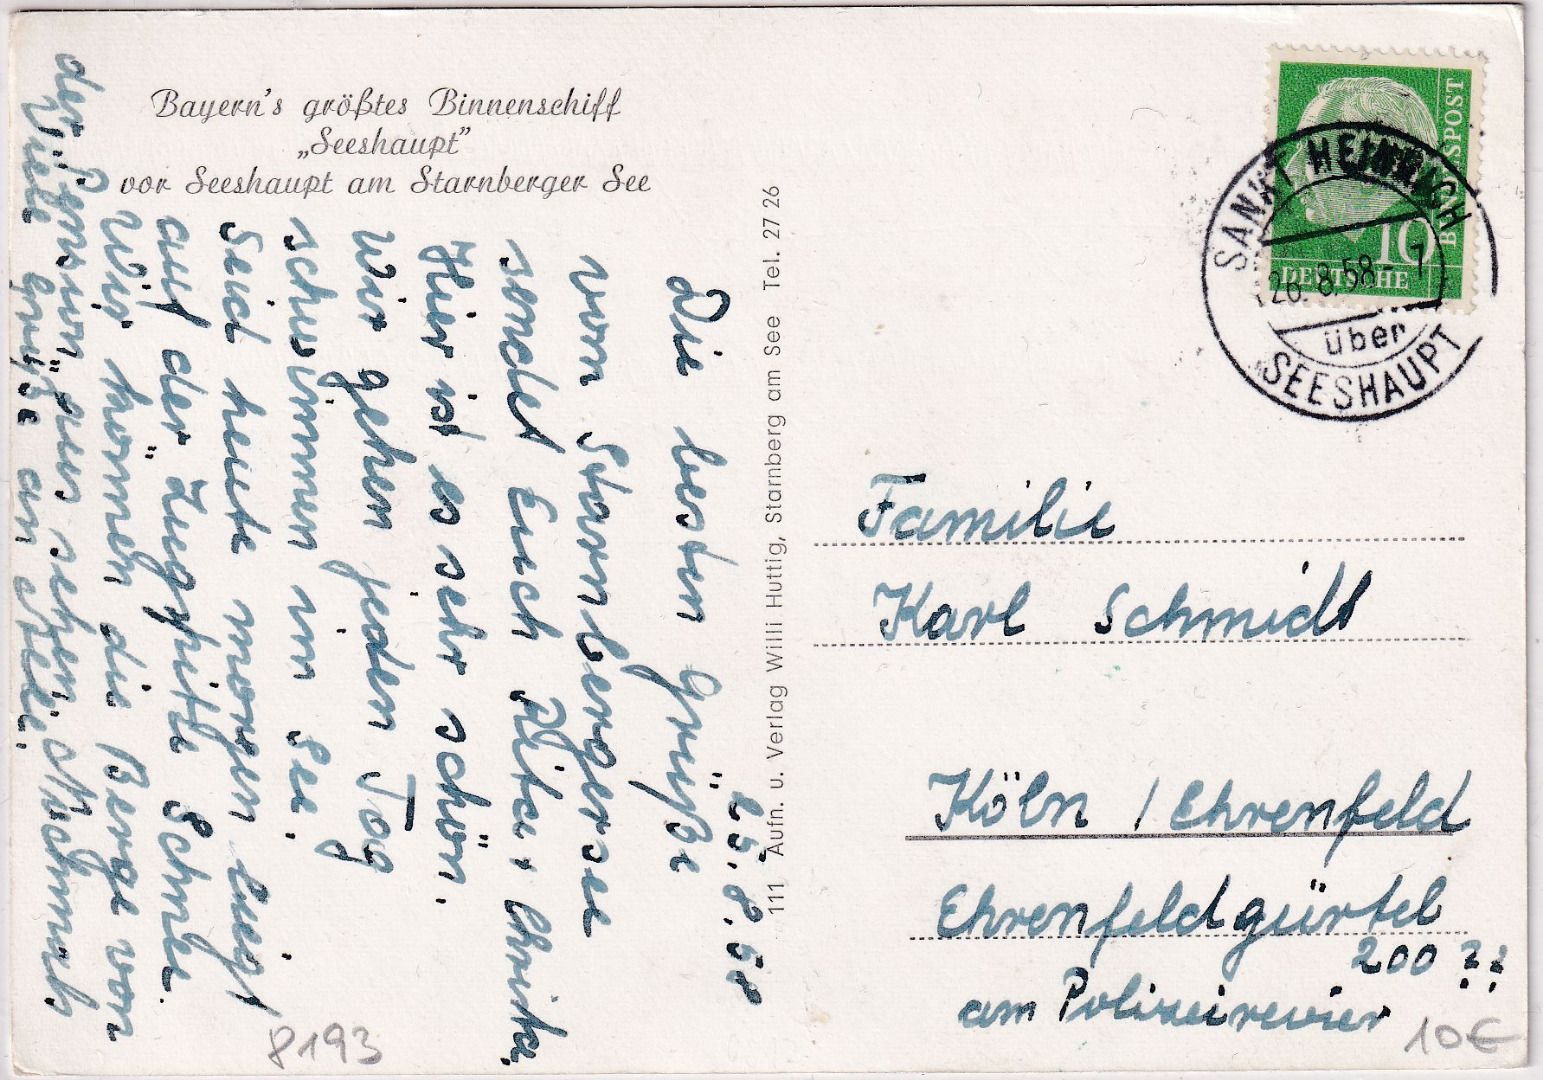 Bayern's größtes Binnenschiff
„Seeshaupt"
vor Seeshaupt am Starnberger See
25.8.58
Die besten Grüße
vom Starnbergersee
sendet Euch Rita, Christa.
Hier ist es sehr schön.
Wir gehen jeden Tag
schwimmen im See.
Seid heute morgen liegt
auf der Zugspitze Schnee.
Wir können die Berge von
der Pension aus sehen.
Viele Grüße an Alle.
111 Aufn. u. Verlag Willi Huttig, Starnberg am See Tel. 27 26
DEUTSCHE
BUNDESPOST
10
SANKT HEINRICH
26.8.58-7
über
SEESHAUPT
Familie
Karl Schmidt
Köln / Ehrenfeld
Ehrenfeldgürtel
200 ??
am Polizeirevier
8193
10€